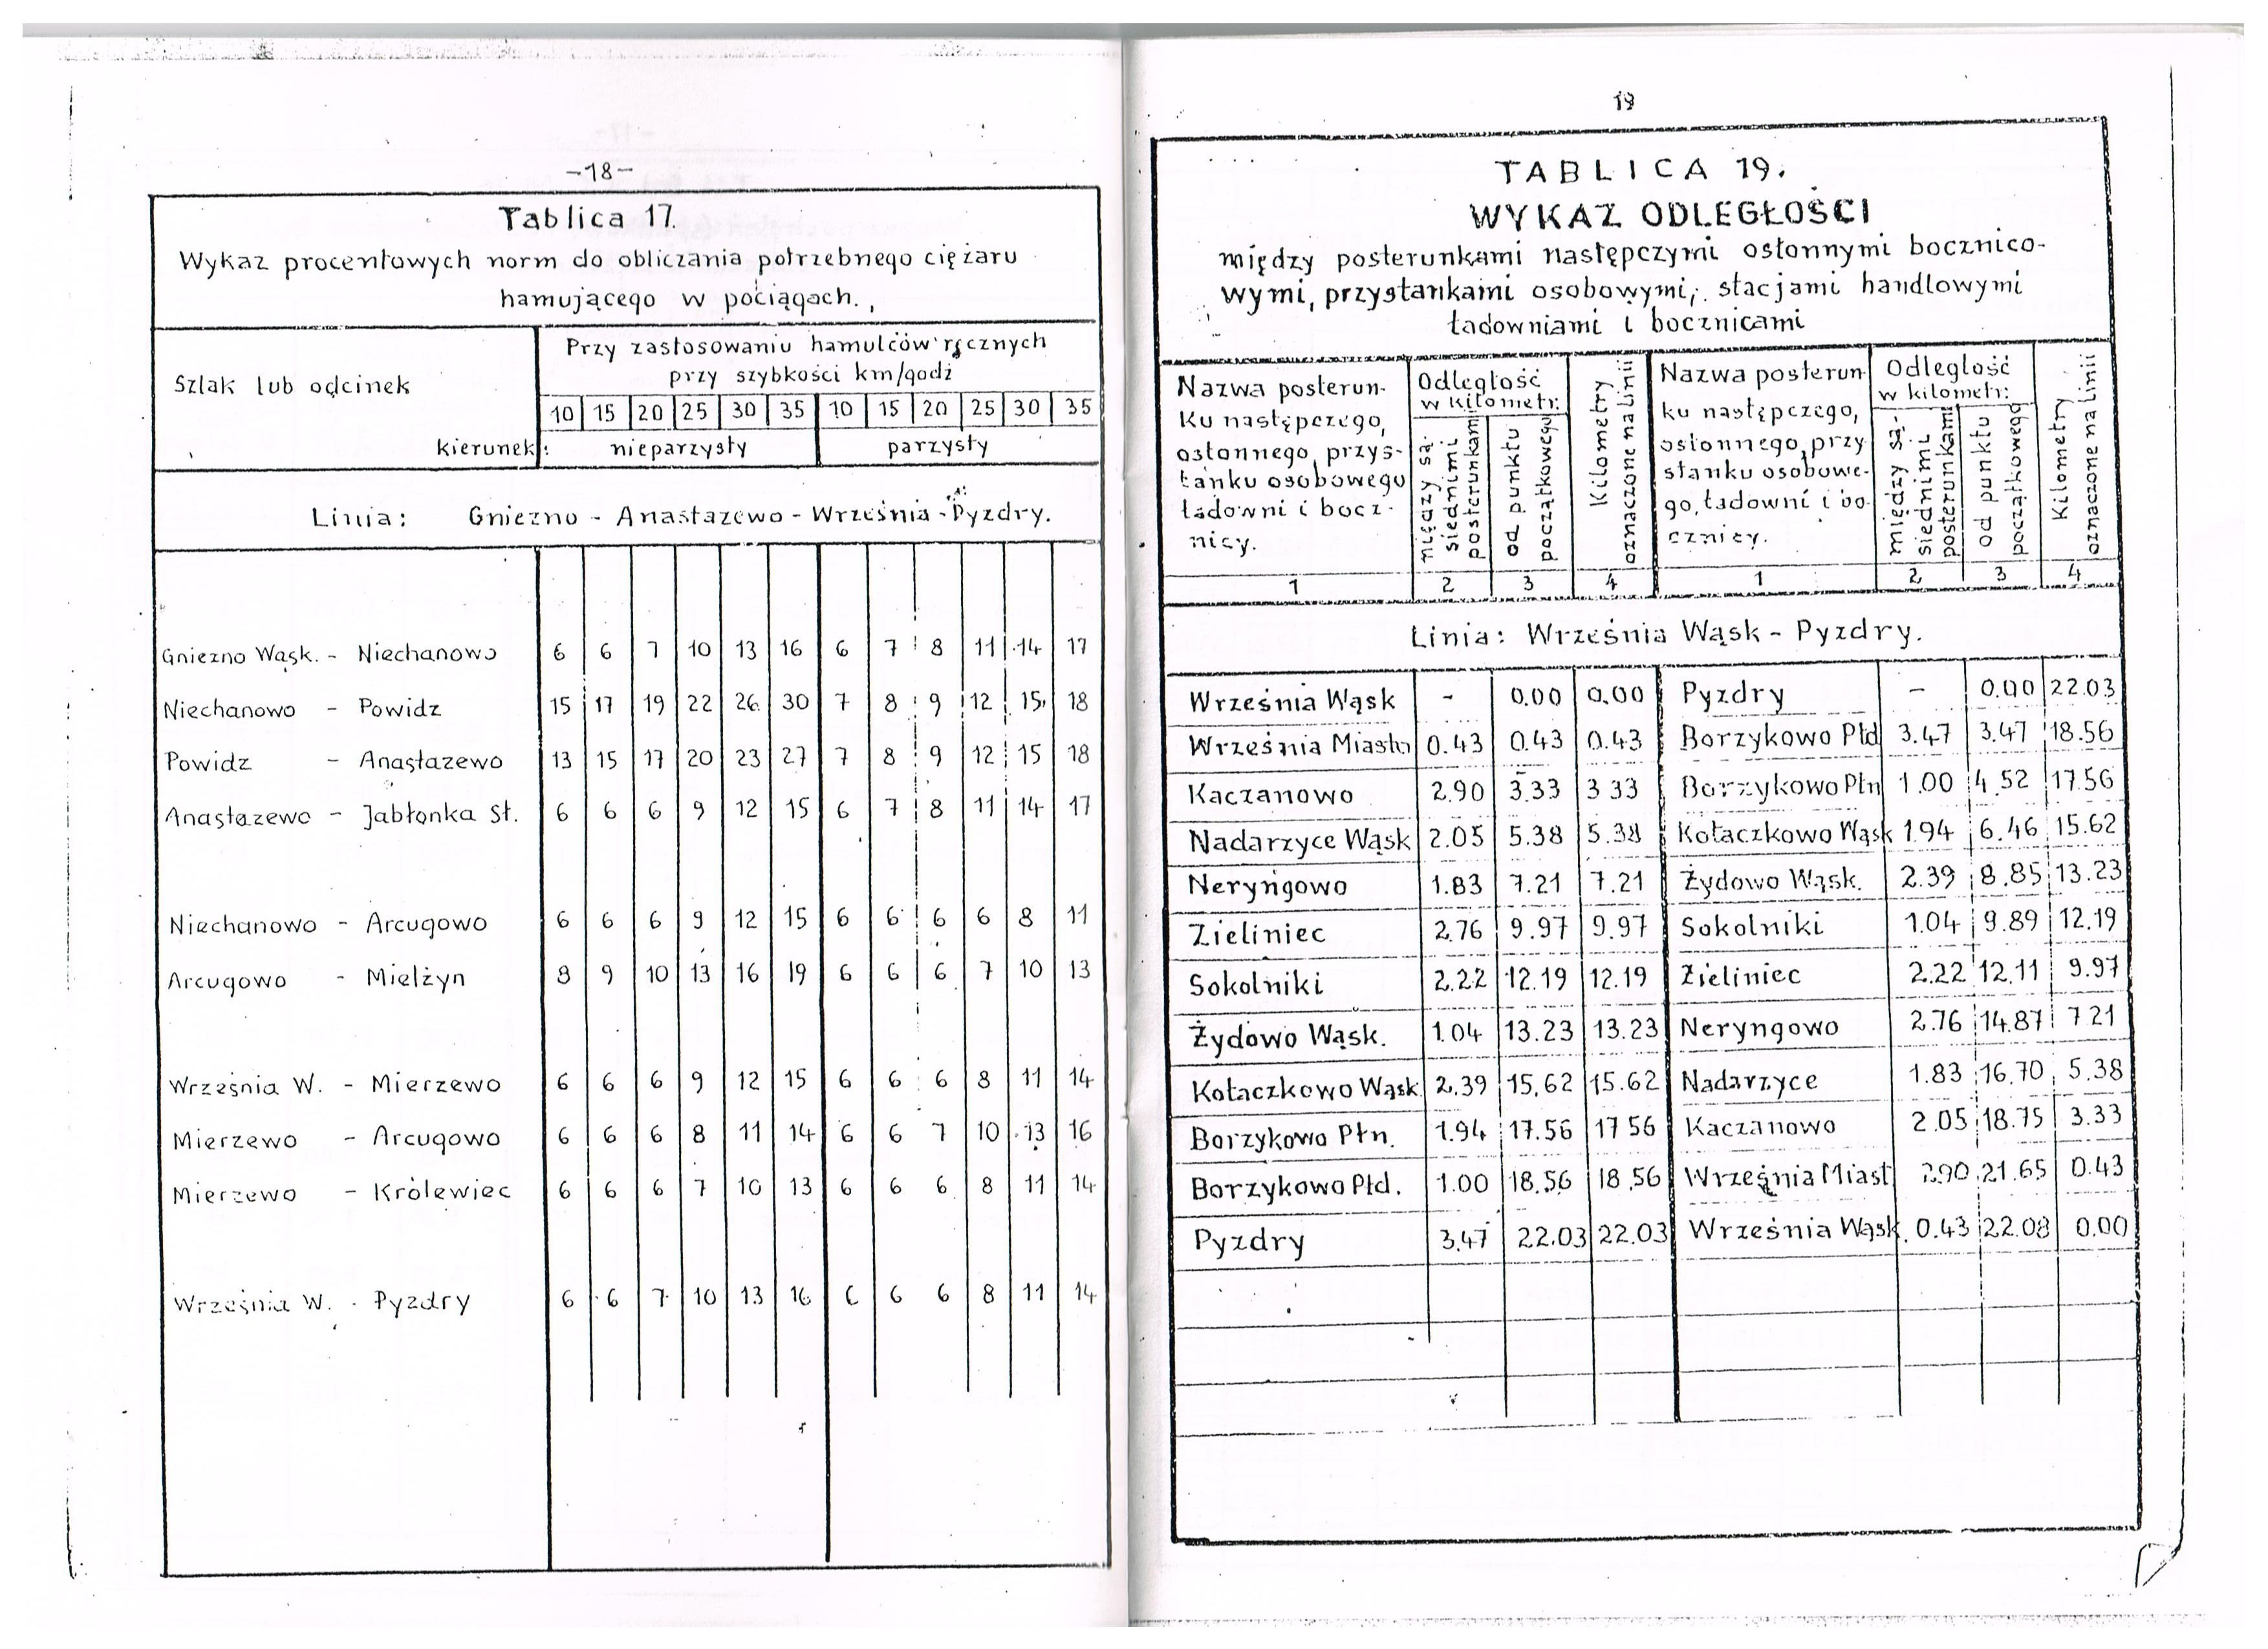 -18-
Tablica 17.
Wykaz procentowych norm do obliczania potrzebnego ciężaru
hamującego w pociągach.
Szlak lub odcinek
Przy zastosowaniu hamulców ręcznych
przy szybkości km/godz
10 15 20 25 30 35 10 15 20 25 30 35
kierunek: nieparzysty parzysty
Linia: Gniezno - Anastazewo - Września - Pyzdry.
Gniezno Wąsk. - Niechanowo 6 6 7 10 13 16 6 7 8 11 14 17
Niechanowo - Powidz 15 17 19 22 26 30 7 8 9 12 15 18
Powidz - Anastazewo 13 15 17 20 23 27 7 8 9 12 15 18
Anastazewo - Jabłonka St. 6 6 6 9 12 15 6 7 8 11 14 17
Niechanowo - Arcugowo 6 6 6 9 12 15 6 6 6 6 8 11
Arcugowo - Mielżyn 8 9 10 13 16 19 6 6 6 7 10 13
Września W. - Mierzewo 6 6 6 9 12 15 6 6 6 8 11 14
Mierzewo - Arcugowo 6 6 6 8 11 14 6 6 7 10 13 16
Mierzewo - Królewiec 6 6 6 7 10 13 6 6 6 8 11 14
Września W. - Pyzdry 6 6 7 10 13 16 6 6 6 8 11 14
19
TABLICA 19.
WYKAZ ODLEGŁOŚCI
między posterunkami następczymi osłonnymi bocznico-
wymi, przystankami osobowymi, stacjami handlowymi
ładowniami i bocznicami
Nazwa posterun-
ku następczego,
osłonnego, przys-
tanku osobowego
ładowni i bocz-
nicy.
Odległość
w kilometr:
między są-
siednimi
posterunkami
od punktu
początkowego
Kilometry
oznaczone na linii
Nazwa posterun-
ku następczego,
osłonnego, przy
stanku osobowe-
go, ładowni i bo-
cznicy.
Odległość
w kilometr:
między są-
siednimi
posterunkami
od punktu
początkowego
Kilometry
oznaczone na linii
1 2 3 4 1 2 3 4
Linia: Września Wąsk - Pyzdry.
Września Wąsk - 0.00 0.00 Pyzdry - 0.00 22.03
Września Miasto 0.43 0.43 0.43 Borzykowo Płd 3.47 3.47 18.56
Kaczanowo 2.90 3.33 3 33 Borzykowo Płn 1.00 4.52 17.56
Nadarzyce Wąsk 2.05 5.38 5.38 Kołaczkowo Wąsk 1.94 6.46 15.62
Neryngowo 1.83 7.21 7.21 Żydowo Wąsk. 2.39 8.85 13.23
Zieliniec 2.76 9.97 9.97 Sokolniki 1.04 9.89 12.19
Sokolniki 2.22 12.19 12.19 Zieliniec 2.22 12.11 9.97
Żydowo Wąsk. 1.04 13.23 13.23 Neryngowo 2.76 14.87 7 21
Kołaczkowo Wąsk 2.39 15.62 15.62 Nadarzyce 1.83 16.70 5.38
Borzykowo Płn. 1.94 17.56 17 56 Kaczanowo 2.05 18.75 3.33
Borzykowo Płd. 1.00 18.56 18.56 Września Miast 2.90 21.65 0.43
Pyzdry 3.47 22.03 22.03 Września Wąsk. 0.43 22.08 0.00